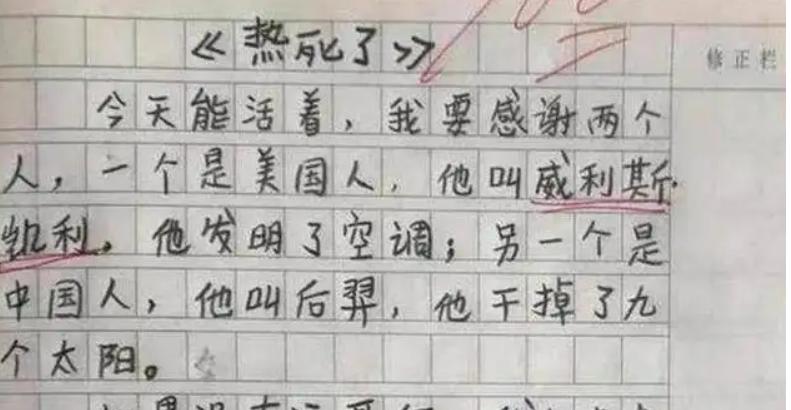 《热死了》
修正栏
今天能活着，我要感谢两个
人，一个是美国人，他叫威利斯
凯利，他发明了空调；另一个是
中国人，他叫后羿，他干掉了九
个太阳。